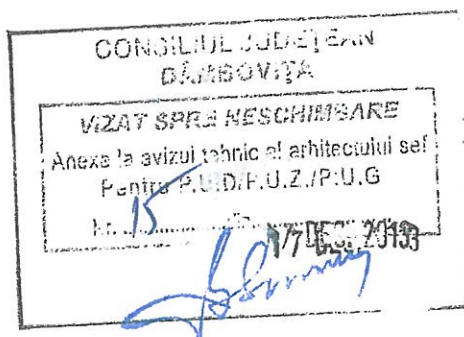 CONSILIUL JUDEȚEAN
DÂMBOVIȚA
VIZAT SPRE NESCHIMBARE
Anexa la avizul tehnic al arhitectului sef
Pentru P.U.D/P.U.Z./P.U.G
Nr. 15
17 DEC. 2013